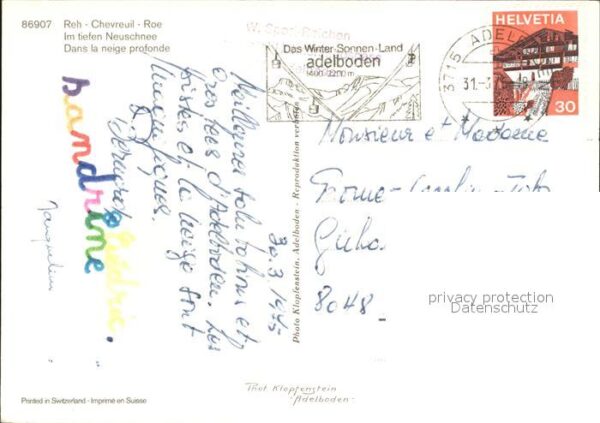 86907
Reh - Chevreuil - Roe
Im tiefen Neuschnee
Dans la neige profonde
Das Winter-Sonnen-Land
adelboden
1400-2200 m
3715 ADELBODEN
31.-3.75
HELVETIA
30
30.3.1975
Meilleures salutations et
gros becs d'Adelboden. Les
pistes et la neige sont
magnifiques.
Bernard
sandrine
Cédric.
Jacqueline
Photo Klopfenstein, Adelboden - Reproduktion verboten
Monsieur et Madame
8048
privacy protection
Datenschutz
Phot Klopfenstein
-Adelboden-
Printed in Switzerland - Imprimé en Suisse